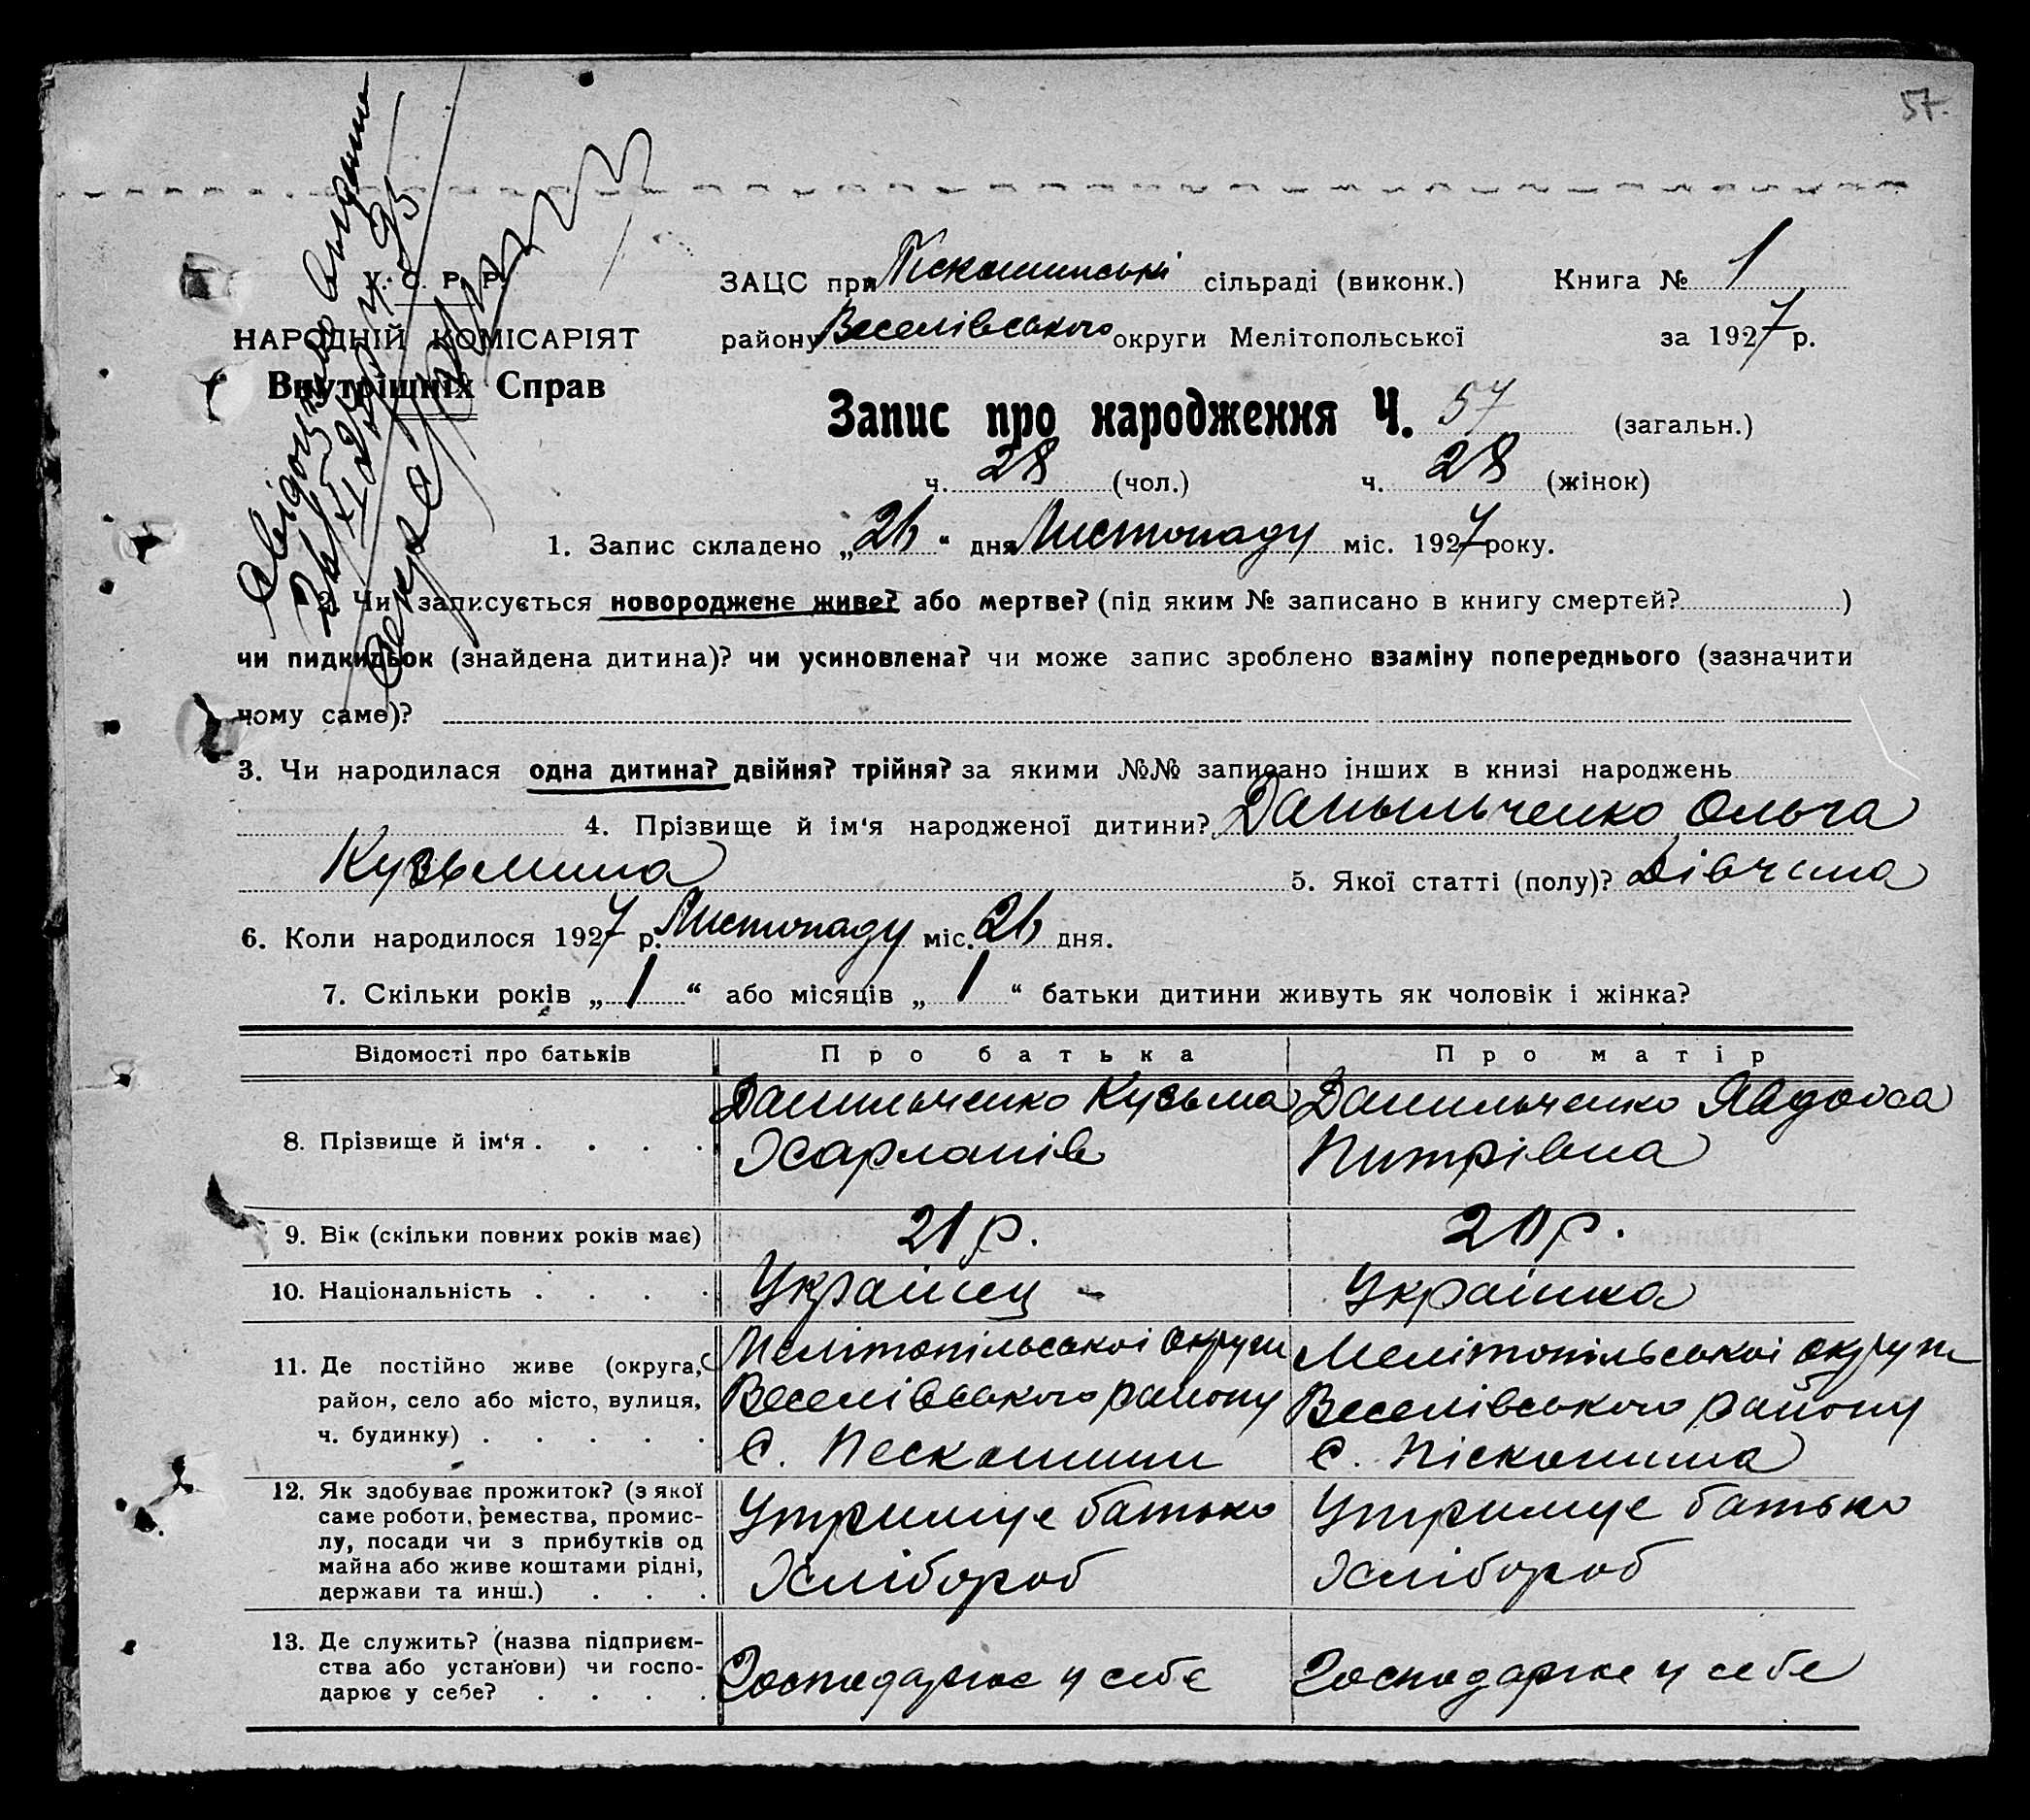 57.
У. С. Р. Р.
НАРОДНІЙ КОМІСАРІЯТ
Внутрішніх Справ
ЗАЦС при Піскошинські сільраді (виконк.) Книга № 1
району Веселівського округи Мелітопольської за 1927 р.
Запис про народження Ч. 57 (загальн.)
ч. 28 (чол.) ч. 28 (жінок)
1. Запис складено „26“ дня Листопаду міс. 1927 року.
2. Чи записується новороджене живе? або мертве? (під яким № записано в книгу смертей? )
чи пидкидьок (знайдена дитина)? чи усиновлена? чи може запис зроблено взаміну попереднього (зазначити
чому саме)?
3. Чи народилася одна дитина? двійня? трійня? за якими №№ записано інших в книзі народжень
4. Прізвище й ім‘я народженої дитини? Даныльченко Ольга
Кузьмина 5. Якої статті (полу)? Дівчина
6. Коли народилося 1927 р. Листопаду міс. 26 дня.
7. Скільки років „ 1 “ або місяців „ 1 “ батьки дитини живуть як чоловік і жінка?
Відомості про батьків Про батька Про матір
8. Прізвище й ім‘я . . . . Данильченко Кузьма Данильченко Явдоса
Харланів Питрівна
9. Вік (скільки повних років має) 21 р. 20 р.
10. Національність . . . . Українец Українка
11. Де постійно живе (округа, Мелітопільської округи Мелітопільської округи
район, село або місто, вулиця, Веселівського району Веселівського району
ч. будинку) . . . . . С. Пескошини С. Піскошина
12. Як здобуває прожиток? (з якої
саме роботи, ремества, промис- Утримує батько Утримує батько
лу, посади чи з прибутків од
майна або живе коштами рідні, Хлібороб Хлібороб
держави та инш.) . . .
13. Де служить? (назва підприєм-
ства або установи) чи госпо- Господарює у себе Господарює у себе
дарює у себе? . . . .